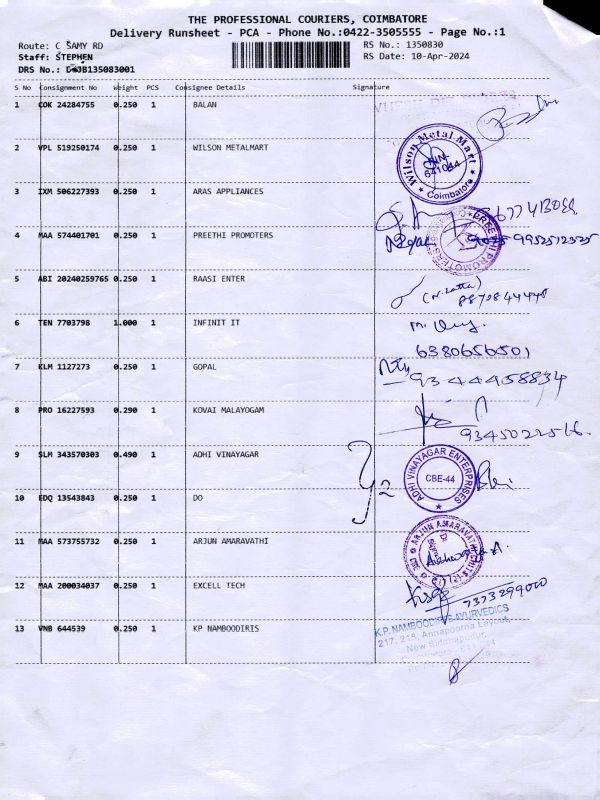 THE PROFESSIONAL COURIERS, COIMBATORE
Delivery Runsheet - PCA - Phone No.:0422-3505555 - Page No.:1
Route: C SAMY RD
RS No.: 1350830
Staff: STEPHEN
RS Date: 10-Apr-2024
DRS No.:
S No Consignment No Weight PCS Consignee Details Signature
1 COK 24284755 0.250 1 BALAN
2 VPL 519250174 0.250 1 WILSON METALMART
Wilson Metal Mart
PIN-
641044
Coimbatore
3 IXM 506227393 0.250 1 ARAS APPLIANCES
4 MAA 574401701 0.250 1 PREETHI PROMOTERS
PREETHI PROMOTERS
9952512525
5 ABI 20240259765 0.250 1 RAASI ENTER
8870844448
6 TEN 7703798 1.000 1 INFINIT IT
6380656501
7 KLM 1127273 0.250 1 GOPAL
9344458834
8 PRO 16227593 0.290 1 KOVAI MALAYOGAM
9345022516.
9 SLM 343570303 0.490 1 ADHI VINAYAGAR
ADHI VINAYAGAR ENTERPRISES
CBE-44
10 EDQ 13543843 0.250 1 DO
11 MAA 573755732 0.250 1 ARJUN AMARAVATHI
ARJUN AMARAVATHI
12 MAA 200034037 0.250 1 EXCELL TECH
7373299000
13 VNB 644539 0.250 1 KP NAMBOODIRIS
K.P. NAMBOODIRI'S AYURVEDICS
217, 218, Annapoorna Layout,
New Siddhapudur,